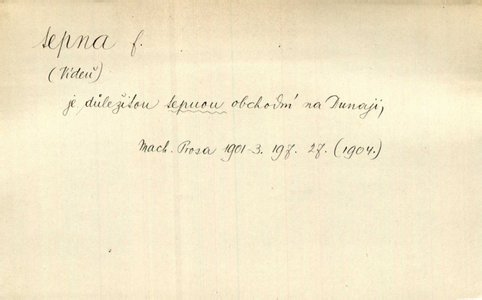 tepna f.
(Vídeň)
je důležitou tepnou obchodní na Dunaji,
Mach. Prosa 1901-3. 197. 27. (1904.)